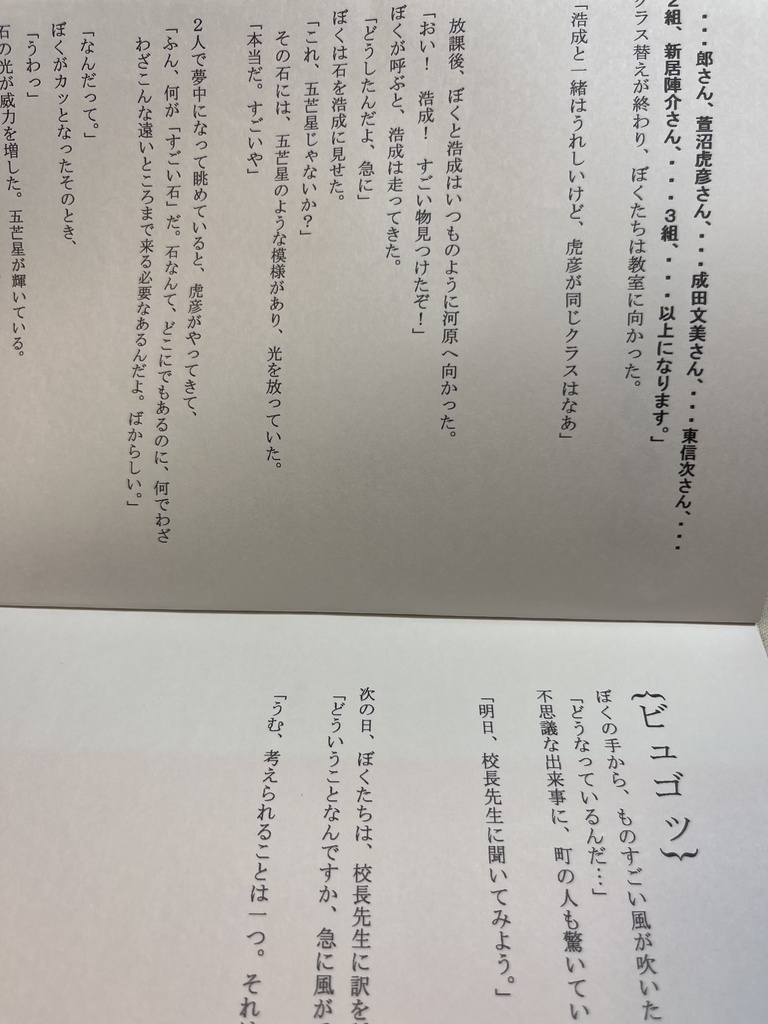 ・・・郎さん、萱沼虎彦さん、・・・成田文美さん、・・・東信次さん、・・・
2組、新居陣介さん、・・・3組、・・・以上になります。」
クラス替えが終わり、ぼくたちは教室に向かった。
「浩成と一緒はうれしいけど、虎彦が同じクラスはなあ」
放課後、ぼくと浩成はいつものように河原へ向かった。
「おい！　浩成！　すごい物見つけたぞ！」
ぼくが呼ぶと、浩成は走ってきた。
「どうしたんだよ、急に」
ぼくは石を浩成に見せた。
「これ、五芒星じゃないか？」
その石には、五芒星のような模様があり、光を放っていた。
「本当だ。すごいや」
2人で夢中になって眺めていると、虎彦がやってきて、
「ふん、何が「すごい石」だ。石なんて、どこにでもあるのに、何でわざ
わざこんな遠いところまで来る必要なあるんだよ。ばからしい。」
「なんだって。」
ぼくがカッとなったそのとき、
「うわっ」
石の光が威力を増した。五芒星が輝いている。
{ビュゴッ}
ぼくの手から、ものすごい風が吹いた
「どうなっているんだ…」
不思議な出来事に、町の人も驚いてい
「明日、校長先生に聞いてみよう。」
次の日、ぼくたちは、校長先生に訳を
「どういうことなんですか、急に風が
「うむ、考えられることは一つ。それ